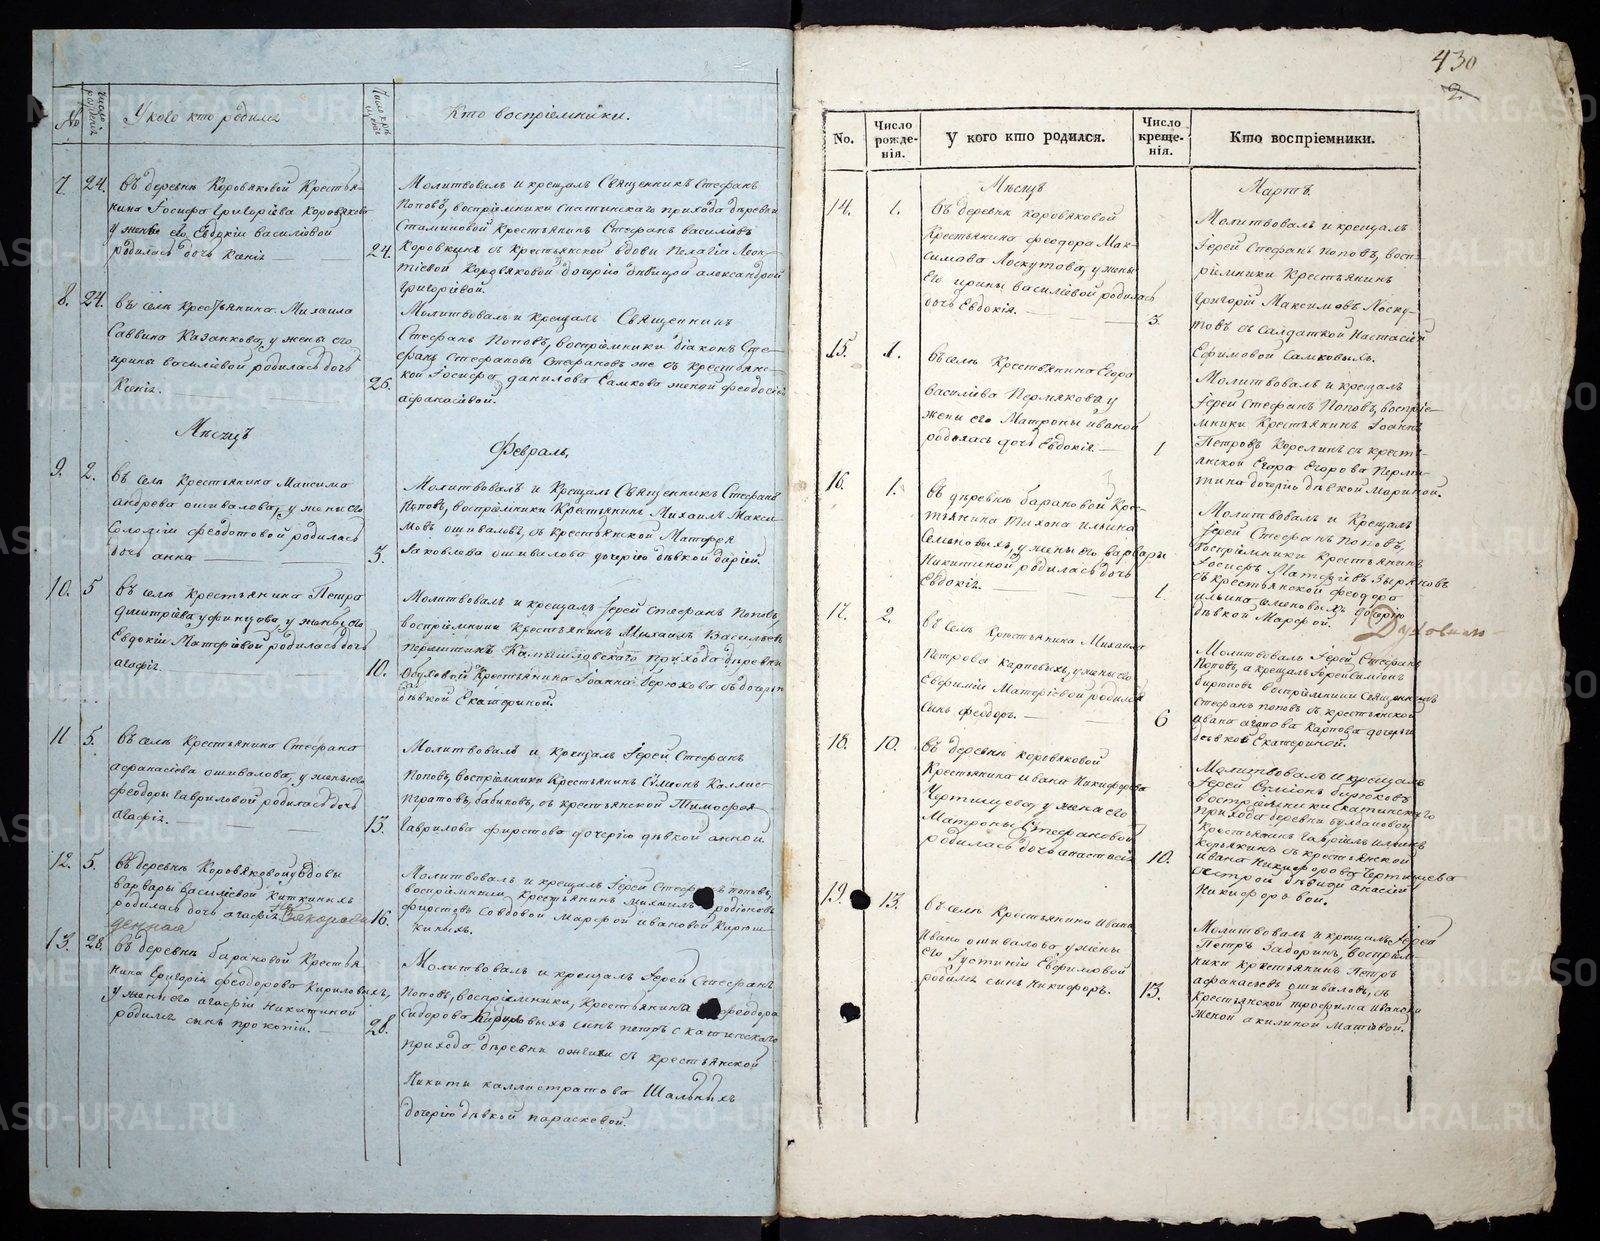 №
Число рожденія
У кого кто родился
Число крещенія
Кто воспріемники.
7.
24.
Въ деревнѣ Коровяковой Крестья-
нина Іосифа Григоріева Коровякова
у жены его Евдокіи Василіевой
родилась дочь Ксенія
24.
Молитвовалъ и крещалъ Священникъ Стефанъ
Поповъ, воспріемники прихода деревни
Крестьянинъ Стефанъ Василіевъ
Коровкинъ съ Крестьянской вдовы Пелагіи Леон-
тіевой Коровяковой дочерію дѣвицой Александрой
Григоріевой.
8.
24.
Въ селѣ Крестьянина Михаила
Саввина Казанкова, у жены его
Ирины Василіевой родилась дочь
Ксенія.
26.
Молитвовалъ и крещалъ Священникъ
Стефанъ Поповъ, воспріемники діаконъ Сте-
фанъ Стефановъ Стефановъ же съ крестьянс-
кой Іосифа Данилова Санкова женой Феодосіей
Афанасіевой.
Мѣсяцъ
Февраль,
9.
2.
Въ селѣ Крестьянина Максима
Андреева Ошивалова, у жены его
Соломіи Феодотовой родилась
дочь Анна
3.
Молитвовалъ и Крещалъ Священникъ Стефанъ
Поповъ, воспріемники Крестьянинъ Михаилъ Макси-
мовъ Ошиваловъ, съ Крестьянской Матфея
Іаковлева Ошивалова дочерію дѣвкой Даріей.
10.
5
Въ селѣ Крестьянина Петра
Димитріева Уфинцова, у жены его
Евдокіи Матфіевой родилась дочь
Агафія.
10.
Молитвовалъ и крещалъ Іерей Стефанъ Поповъ,
воспріемники Крестьянинъ Михаилъ Васильевъ
Камышловскаго прихода деревни
Обуховой Крестьянина Іоанна съ дочерію
дѣвкой Екатериной.
11
5.
Въ селѣ Крестьянина Стефана
Афанасіева Ошивалова, у жены его
Феодоры Гавриловой родилась дочь
Агафія.
13.
Молитвовалъ и крещалъ Іерей Стефанъ
Поповъ, воспріемники Крестьянинъ Симіонъ Каллис-
тратовъ Бабиновъ, съ крестьянской Тимофея
Гаврилова Фирстова дочерію дѣвкой Анной.
12.
5.
Въ деревнѣ Коровяковой у вдовы
Варвары Василіевой Киткиныхъ
родилась дочь Агафія Незаконорож
денная
16.
Молитвовалъ и крещалъ Іерей Стефанъ Поповъ,
воспріемники Крестьянинъ Михаилъ Родіоновъ
Фирстовъ со вдовой Марфой Ивановой Кирюш-
киныхъ.
13.
28.
Въ деревнѣ Барановой Крестья-
нина Григорія Феодорова Кириловыхъ,
у жены его Агафіи Никитиной
родился сынъ Прокопій.
28.
Молитвовалъ и крещалъ Іерей Стефанъ
Поповъ, воспріемники, Крестьянина Феодора
Сидорова Кириловыхъ сынъ Петръ Скатинскаго
прихода деревни съ крестьянской
Никиты Каллистратова Шальныхъ
дочерію дѣвкой Параскевой.
430
2
No.
Число рожде-нія.
У кого кто родился.
Число креще-нія.
Кто воспріемники.
Мѣсяцъ
Мартъ.
14.
1.
Въ деревнѣ Коровяковой
Крестьянина Феодора Мак-
симова Лоскутова, у жены
его Ирины Василіевой родилась
дочь Евдокія.
3.
Молитвовалъ и крещалъ
Іерей Стефанъ Поповъ, восп-
ріемники Крестьянинъ
Григорій Максимовъ Лоску-
товъ съ Салдаткой Настасіей
Ефимовой Санковыхъ.
15.
1.
Въ селѣ Крестьянина Егора
Василіева Пермякова у
жены его Матроны Ивановой
родилась дочь Евдокія.
1
Молитвовалъ и крещалъ
Іерей Стефанъ Поповъ, воспріе-
мники Крестьянинъ Іоаннъ
Петровъ Корелинъ съ кресть-
янской Егора Егорова
дочерію дѣвкой Мариной.
16.
1.
Въ деревнѣ Барановой Кре-
стьянина Тихона Ильина
Семеновыхъ, у жены его Варвары
Никитиной родилась дочь
Евдокія.
1.
Молитвовалъ и Крещалъ
Іерей Стефанъ Поповъ,
Воспріемники Крестьянинъ
Іосифъ Матфіевъ Зыряновъ
съ крестьянской Феодора
Ильина Семеновыхъ дочерію
дѣвкой Марфой.
17.
2.
Въ селѣ Крестьянина Михаила
Петрова Карповыхъ, у жены его
Евфиміи Матфіевой родился
сынъ Феодоръ.
6
Молитвовалъ Іерей Стефанъ
Поповъ, а крещалъ Іерей Симіонъ
Бирюковъ воспріемники Священникъ
Стефанъ Поповъ съ крестьянской
Ивана Агапова Карпова дочерью
дѣвкой Екатериной.
18.
10.
Въ деревнѣ Коровяковой
Крестьянина Ивана Никифорова
Чертищева, у жены его
Матроны Стефановой
родилась дочь Анастасія
10.
Молитвовалъ и крещалъ
Іерей Симіонъ Бирюковъ
воспріемники Скатинскаго
прихода деревни Булдаковой
Крестьянинъ Гавріилъ Ильинъ
съ крестьянской
Ивана Никифорова Чертищева
сестрой дѣвицей
Никифоровой.
19.
13.
Въ селѣ Крестьянина Ивана
Ивана Ошивалова у жены
его Іустиніи Евфимовой
родился сынъ Никифоръ.
13.
Молитвовалъ и крещалъ Іерей
Петръ Задоринъ, воспріем-
ники крестьянинъ Петръ
Афанасьевъ Ошиваловъ, съ
Крестьянской Трофима Иванова
женой Акилиной Матвевой.